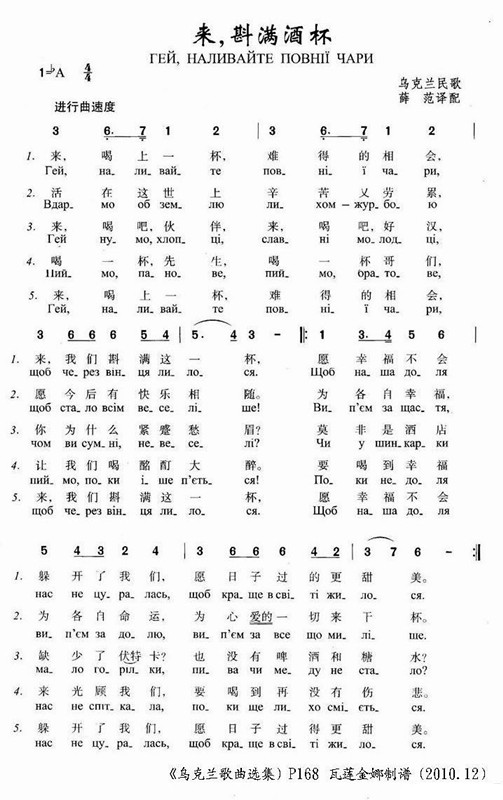 来，斟满酒杯
ГЕЙ, НАЛИВАЙТЕ ПОВНІЇ ЧАРИ
1=♭A 4/4
乌克兰民歌
薛 范译配
进行曲速度
3 6. 7 1 2 | 3 6. 7 1 2 |
1. 来， 喝 上 一 杯， 难 得 的 相 会，
Гей, на- ли- вай- те пов- ні- ї ча- ри,
2. 活 在 这 世 上 辛 苦 又 劳 累，
Вдар- мо об зем- лю ли- хом – жур- бо- ю
3. 来， 喝 吧，伙 伴， 来， 喝 吧，好 汉，
Гей ну- мо, хлоп- ці, слав- ні мо- лод- ці,
4. 喝 一 杯，先 生， 喝 一 杯 哥 们，
Пий- мо, па- но- ве, пий- мо, бра- то- ве,
5. 来， 喝 上 一 杯， 难 得 的 相 会，
Гей, на- ли- вай- те пов- ні- ї ча- ри,
3 6 6 6 5 4 | 5. 4 3 - :| 1 3. 4 5 6 |
1. 来，我 们 斟 满 这 一 杯， 愿 幸 福 不 会
щоб че- рез він- ця ли- ло- ся. Щоб на- ша до- ля
2. 愿 今 后 有 快 乐 相 随。 为 各 自 幸 福，
щоб ста- ло всім ве- се- лі- ше! Ви- п'єм за щас- тя,
3. 你 为 什 么 紧 蹙 愁 眉？ 莫 非 是 酒 店
чом ви сум- ні, не- ве- се- лі? Чи у шин- кар- ки
4. 让 我 们 喝 酩 酊 大 醉。 要 喝 到 幸 福
пий- мо, по- ки і- ше п'єть- ся! По- ки не- до- ля
5. 来，我 们 斟 满 这 一 杯， 愿 幸 福 不 会
щоб че- рез він- ця ли- ло- ся. Щоб на- ша до- ля
5 4 3 2 4 | 3 6 6 6 4 2 | 3 7 6 - :|
1. 躲 开 了 我 们， 愿 日 子 过 的 更 甜 美。
нас не цу- ра- лась, щоб кра- ще в сві- ті жи- ло- ся.
2. 为 各 自 命 运， 为 心 爱的 一 切 来 干 杯。
ви- п'єм за до- лю, ви- п'єм за все що ми- лі- ше.
3. 缺 少 了 伏特 卡？ 也 没 有 啤 酒 和 糖 水？
ма- ло го-ріл- ки, пи- ва чи ме- ду не ста- ло?
4. 来 光 顾 我 们， 要 喝 到 再 没 有 伤 悲。
нас не спіт- ка- ла, по- ки ще ли- хо смі- єть- ся.
5. 躲 开 了 我 们， 愿 日 子 过 得 更 甜 美。
нас не цу- ра- лась, щоб кра- ще в сві- ті жи- ло- ся.
《乌克兰歌曲选集》P168 瓦莲金娜制谱（2010.12）